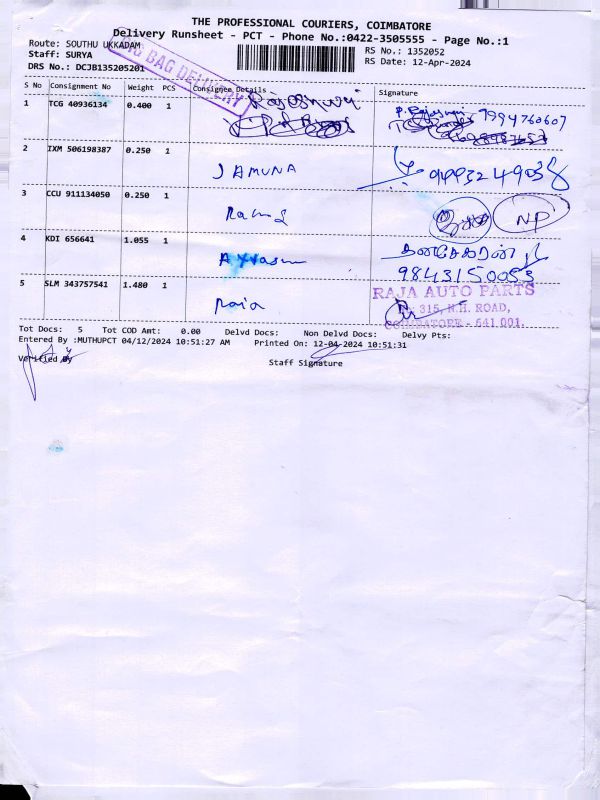 THE PROFESSIONAL COURIERS, COIMBATORE
Delivery Runsheet - PCT - Phone No.:0422-3505555 - Page No.:1
Route: SOUTHU UKKADAM
RS No.: 1352052
Staff: SURYA
RS Date: 12-Apr-2024
DRS No.: DCJB135205201
BIG BAG DELIVERY
S No Consignment No Weight PCS Consignee Details Signature
1 TCG 40936134 0.400 1 Rajeshwari P. Rajeshwari 7994760607
2 IXM 506198387 0.250 1 JAMUNA
3 CCU 911134050 0.250 1 NP
4 KDI 656641 1.055 1
9843150053
5 SLM 343757541 1.480 1 Raja
RAJA AUTO PARTS
315, N.H. ROAD,
COIMBATORE - 641 001.
Tot Docs: 5 Tot COD Amt: 0.00 Delvd Docs: Non Delvd Docs: Delvy Pts:
Entered By :MUTHUPCT 04/12/2024 10:51:27 AM Printed On: 12-04-2024 10:51:31
Verified By
Staff Signature